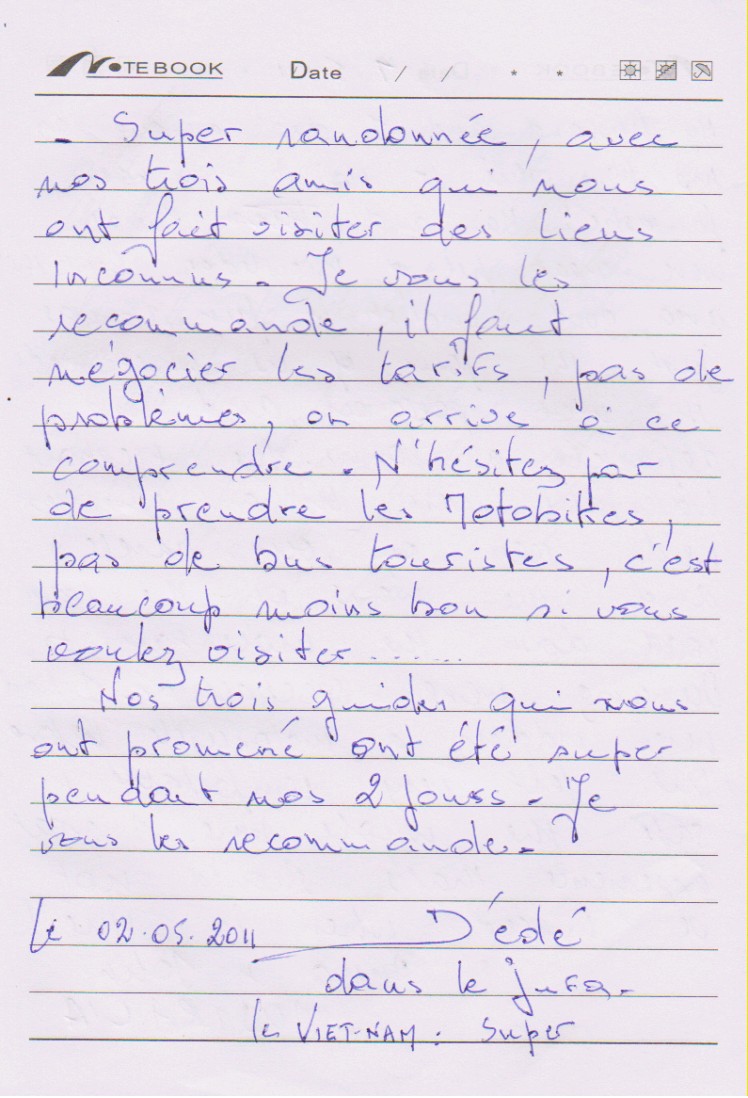 NOTEBOOK Date / /
- Super randonnée, avec
nos trois amis qui nous
ont fait visiter des lieus
inconnus. Je vous les
recommande, il faut
négocier les tarifs, pas de
problèmes, on arrive à ce
comprendre. N'hésitez par
de prendre les Motobikes,
pas de bus touristes, c'est
beaucoup moins bon si vous
voulez visiter.......
Nos trois guides qui nous
ont promené ont été super
pendant nos 2 jours. Je
vous les recommande.
Le 02.05.2011 Dédé
dans le jura.
le VIET-NAM : Super